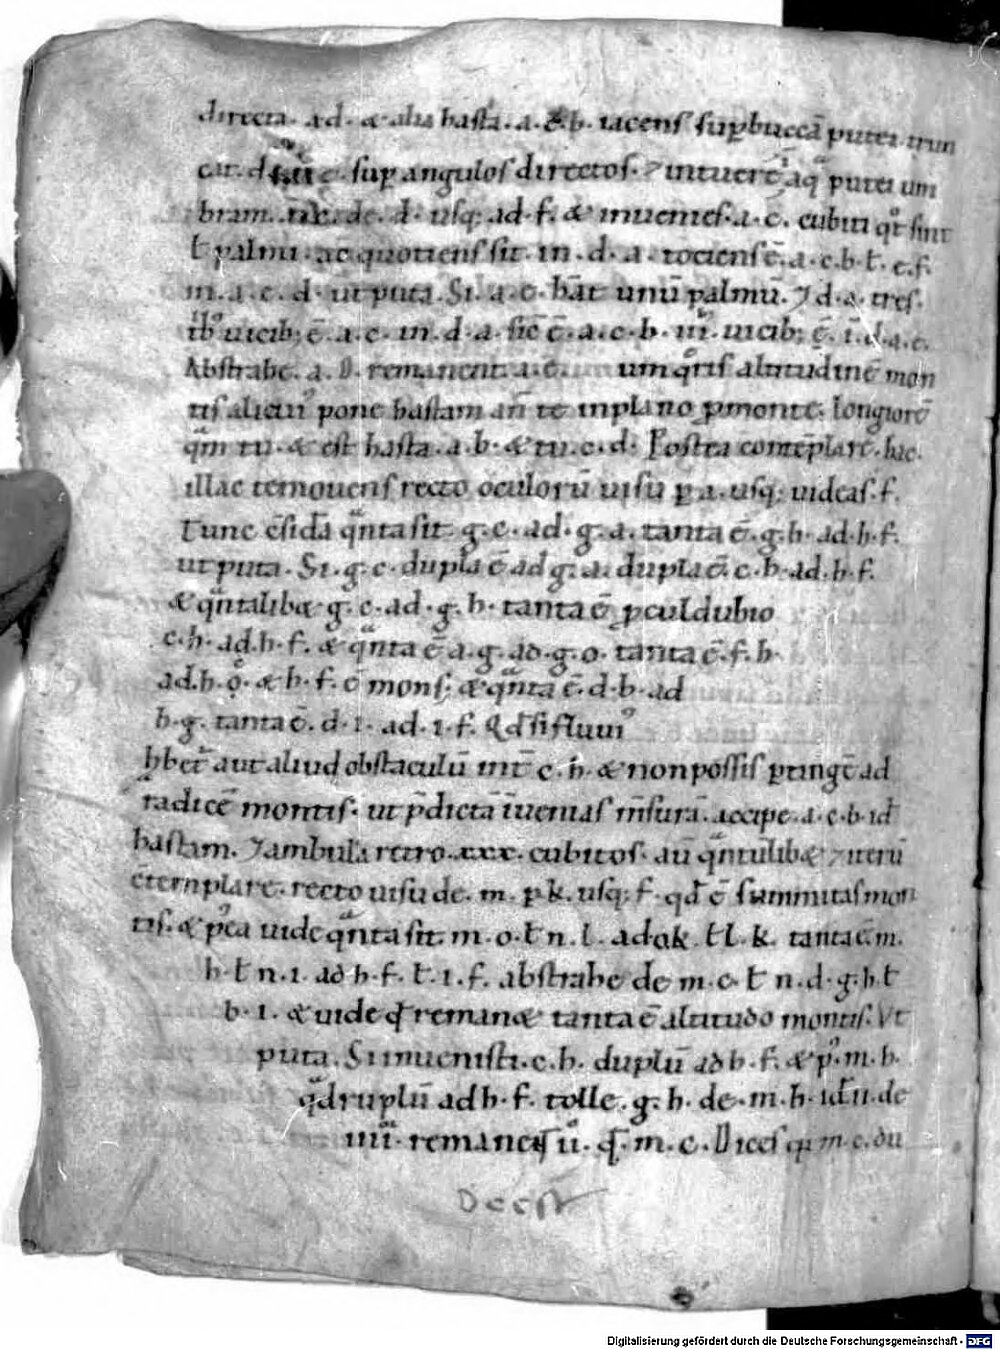 directa. ad. & alia hasta. a. & b. iacens sup buccā putei trun
cat. d sup angulos directos. ⁊ intuere aq putei um
bram. de. d. usq; ad. f. & inuenies. a. c. cubiti qͦt sint
ł palmi. ac quotiens sit. in. d. a. tociens ē. a. c. b. ł. e. f.
in. a. c. d. ut puta. Si. a. c. hāt unū palmū. ⁊ d. a. tres.
uicib; ē. a. c. in. d. a. sic ē. a. c. b. uicib; ē. ī. d. a. c.
Abstrahe. a. d. remanent. a. c. um qͦris altitudinē mon
tis alicui᾽ pone hastam an̄ te in plano ꝑ monte. longiorē
qͣm tu. & est hasta. a. b. & tu. c. d. Postea contēplare. hac.
illac temouens recto oculorū uisu ꝑ a. usq; uideas. f.
Tunc c̄sida qͣnta sit. g. c. ad. g. a. tanta ē. g. h. ad. h. f.
ut puta. Si. g. c. dupla ē ad g. a. dupla ē. c. h. ad. h. f.
& qͣntalib& g. c. ad. g. h. tanta ē proculdubio
c. h. ad. h. f. & qͣnta ē a. g. ad. g. o. tanta ē. f. h.
ad. h. o. & h. f. ē mons; & qͣnta ē. d. b. ad
b. g. tanta ē. d. i. ad. i. f. Qd si fluui᾽
hb&ͣ aut aliud obstaculū int̄ c. h. & non possis ꝑting̃e ad
radicē montis. ut p̄dictā īuenias m̄surā. accipe. a. c. b. id
hastam. ⁊ ambula retro. xxx. cubitos. aū qͣntūlib& ⁊ iterū
c̄templare. recto uisu de. m. ꝑ k. usq; f. qd ē summitas mon
tis. & p᾽ea uide qͣnta sit. m. o. ł n. l. ad ok. ł l. k. tanta ē. m.
h. ł n. i. ad h. f. ł. i. f. abstrahe de m. c. ł n. d. g. h. ł
b. i. & uide qd reman& tanta ē altitudo montis. Vt
puta. Si inuenisti. c. h. duplū ad h. f. & p᾽. m. h.
qͣdruplū ad h. f. tolle. g. h. de. m. h. id. ii. de
iiii. remanet ii. m. c. Dices qi m. c. du
Deest
Digitalisierung gefördert durch die Deutsche Forschungsgemeinschaft - DFG